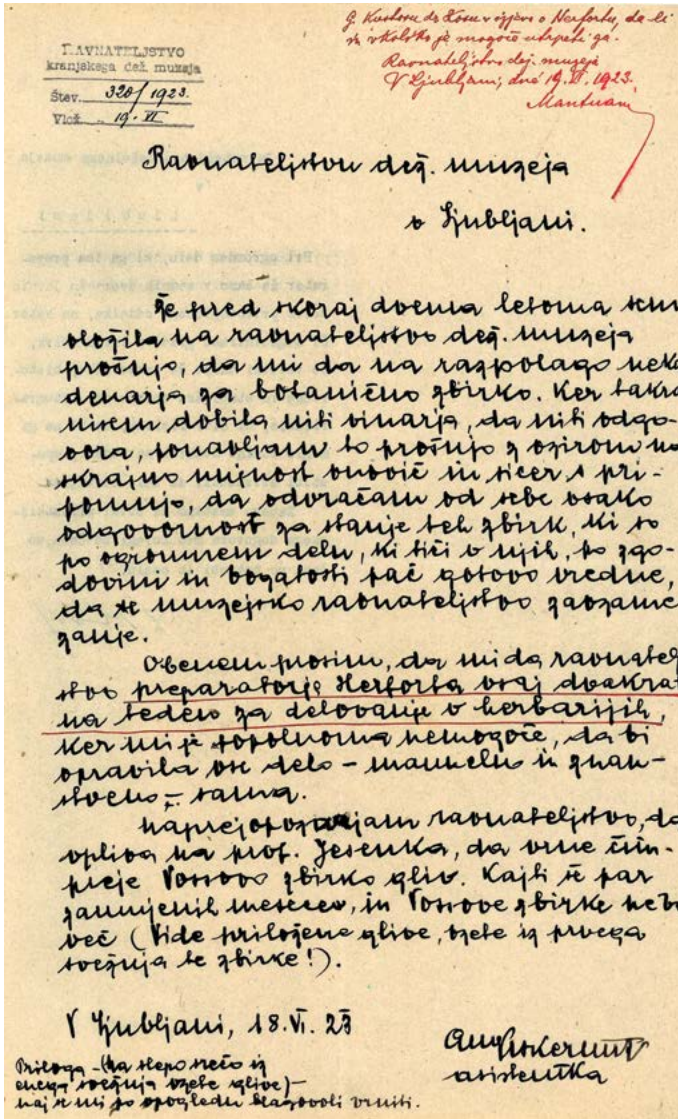 G. Kustosu dr. Kosu v izjavo o Herfortu, da-li
in v koliko je mogoče utrpeti ga.
Ravnateljstvo dež. muzeja
V Ljubljani, dné 19. VI. 1923.
Mantuani
RAVNATELJSTVO
kranjskega dež. muzeja
Štev. 320/1923.
Vlož. 19. VI
Ravnateljstvu dež. muzeja
v Ljubljani.
Že pred skoraj dvema letoma sem
vložila na ravnateljstvo dež. muzeja
prošnjo, da mi da na razpolago neka
denarja za botanično zbirko. Ker takra
nisem dobila niti vinarja, da niti odgo-
vora, ponavljam to prošnjo z ozirom na
skrajno nujnost vnovič in sicer s pri-
pomnjo, da odvračam od sebe vsako
odgovornost za stanje teh zbirk, ki so
po ogromnem delu, ki tiči v njih, po zgo-
dovini in bogatosti pač gotovo vredne,
da se muzejsko ravnateljstvo zavzame
zanje.
Obenem prosim, da mi da ravnatelj
stvo preparatorja Herforta vsaj dvakrat
na teden za delovanje v herbarijih,
ker mi je popolnoma nemogoče, da bi
opravila vse delo – manuelno in znan-
stveno – sama.
Naprej pozivjam ravnateljstvo, da
vpliva na prof. Jesenka, da vrne čim-
preje Vossovo zbirko gliv. Kajti še par
zamujenih mesecev, in Vossove zbirke ne bo
več (Vide priložene glive, vzete iz prvega
svežnja te zbirke!).
V Ljubljani, 18. VI. 23
asistentka
Priloga – (na slepo nečo iz
enega svežnja vzete glive) –
naj se mi po vpogledu blagovoli vrniti.